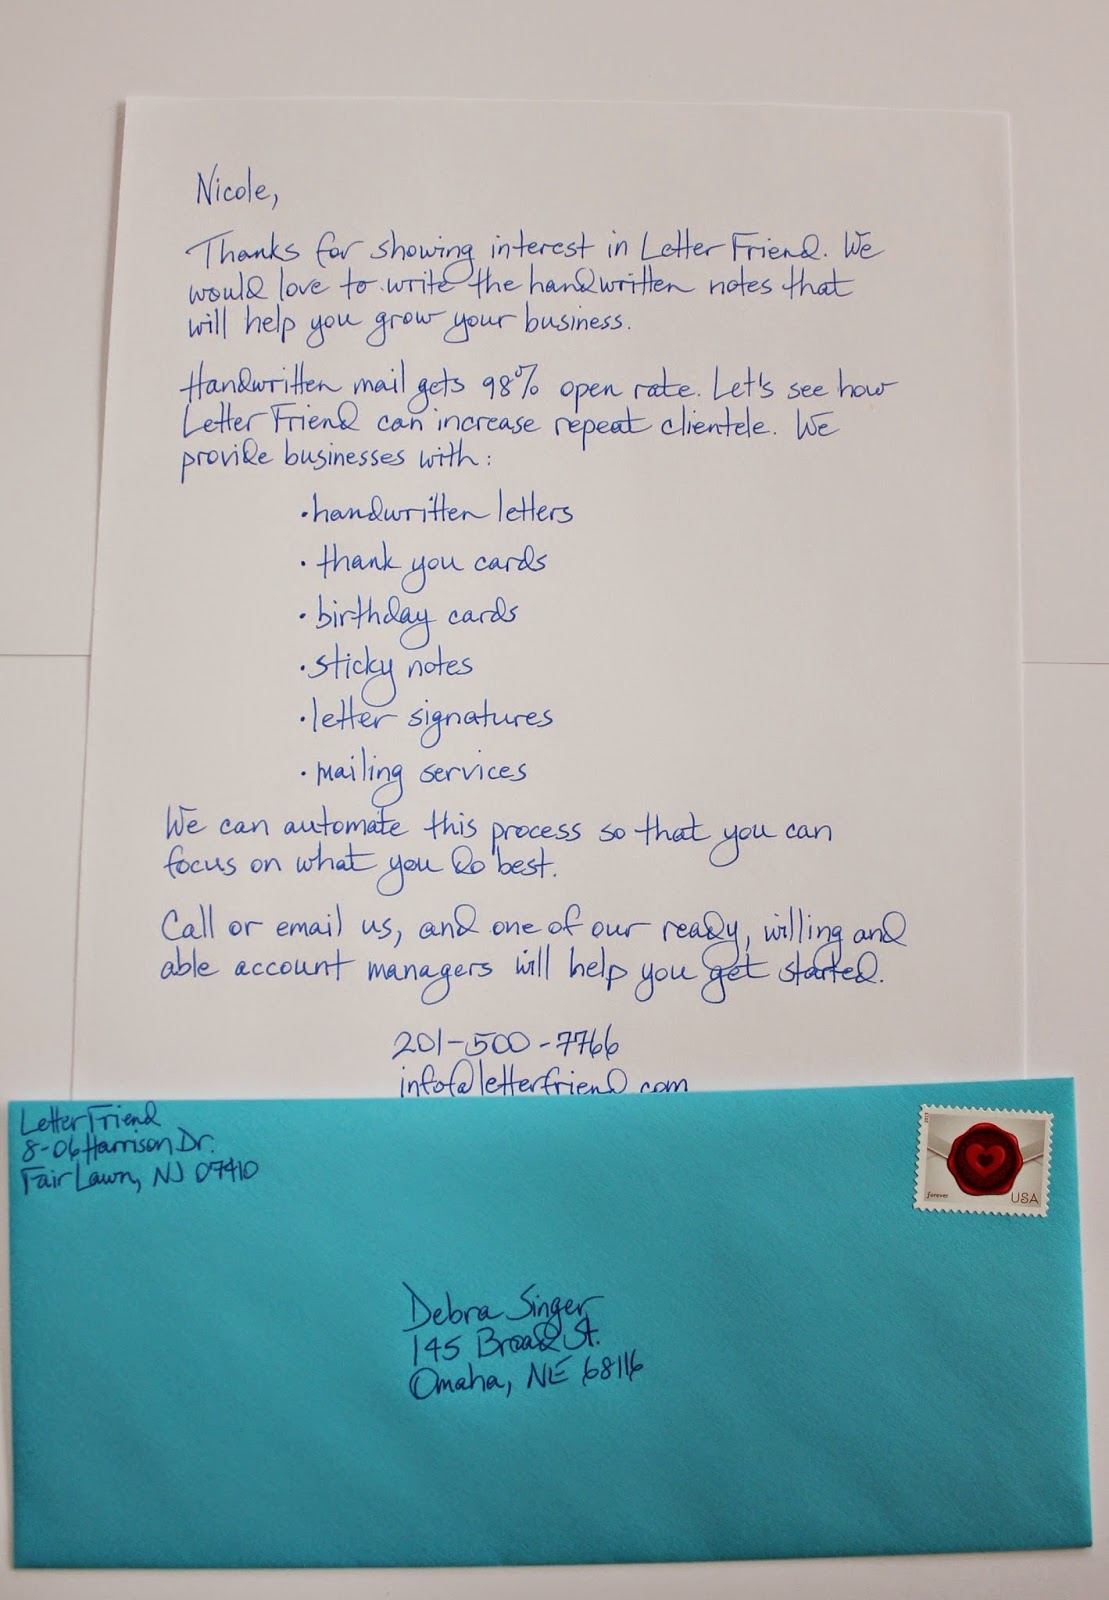 Nicole,
Thanks for showing interest in Letter Friend. We
would love to write the handwritten notes that
will help you grow your business.
Handwritten mail gets 98% open rate. Let's see how
Letter Friend can increase repeat clientele. We
provide businesses with:
• handwritten letters
• thank you cards
• birthday cards
• sticky notes
• letter signatures
• mailing services
We can automate this process so that you can
focus on what you do best.
Call or email us, and one of our ready, willing and
able account managers will help you get started.
201-500-7766
info@letterfriend.com
Letter Friend
8-06 Harrison Dr.
Fair Lawn, NJ 07410
2013
forever
USA
Debra Singer
145 Broad St.
Omaha, NE 68116